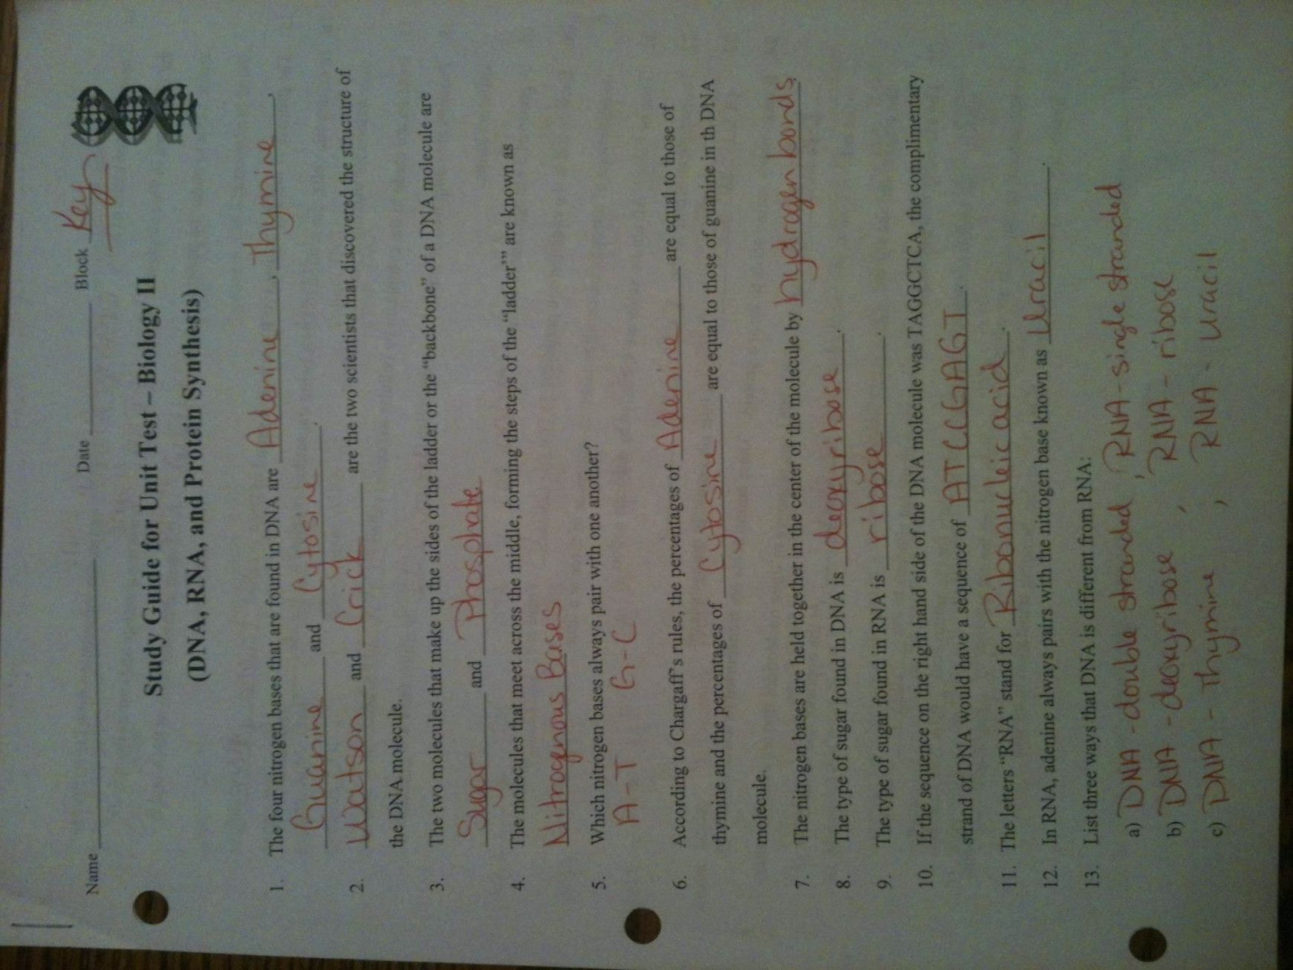 Name Date Block Key
Study Guide for Unit Test – Biology II
(DNA, RNA, and Protein Synthesis)
1. The four nitrogen bases that are found in DNA are Adenine, Thymine,
Guanine and Cytosine.
2. Watson and Crick are the two scientists that discovered the structure of
the DNA molecule.
3. The two molecules that make up the sides of the ladder or the “backbone” of a DNA molecule are
Sugar and Phosphate
4. The molecules that meet across the middle, forming the steps of the “ladder’” are known as
Nitrognous Bases
5. Which nitrogen bases always pair with one another?
A-T G-C
6. According to Chargaff's rules, the percentages of Adenine are equal to those of
thymine and the percentages of Cytosine are equal to those of guanine in th DNA
molecule.
7. The nitrogen bases are held together in the center of the molecule by hydrogen bonds.
8. The type of sugar found in DNA is deoxyribose.
9. The type of sugar found in RNA is ribose.
10. If the sequence on the right hand side of the DNA molecule was TAGGCTCA, the complimentary
strand of DNA would have a sequence of ATCCGAGT.
11. The letters “RNA” stand for Ribonucleic acid.
12. In RNA, adenine always pairs with the nitrogen base known as Uracil.
13. List three ways that DNA is different from RNA:
a) DNA - double stranded, RNA - single stranded
b) DNA - deoxyribose, RNA - ribose
c) DNA - Thymine, RNA - Uracil